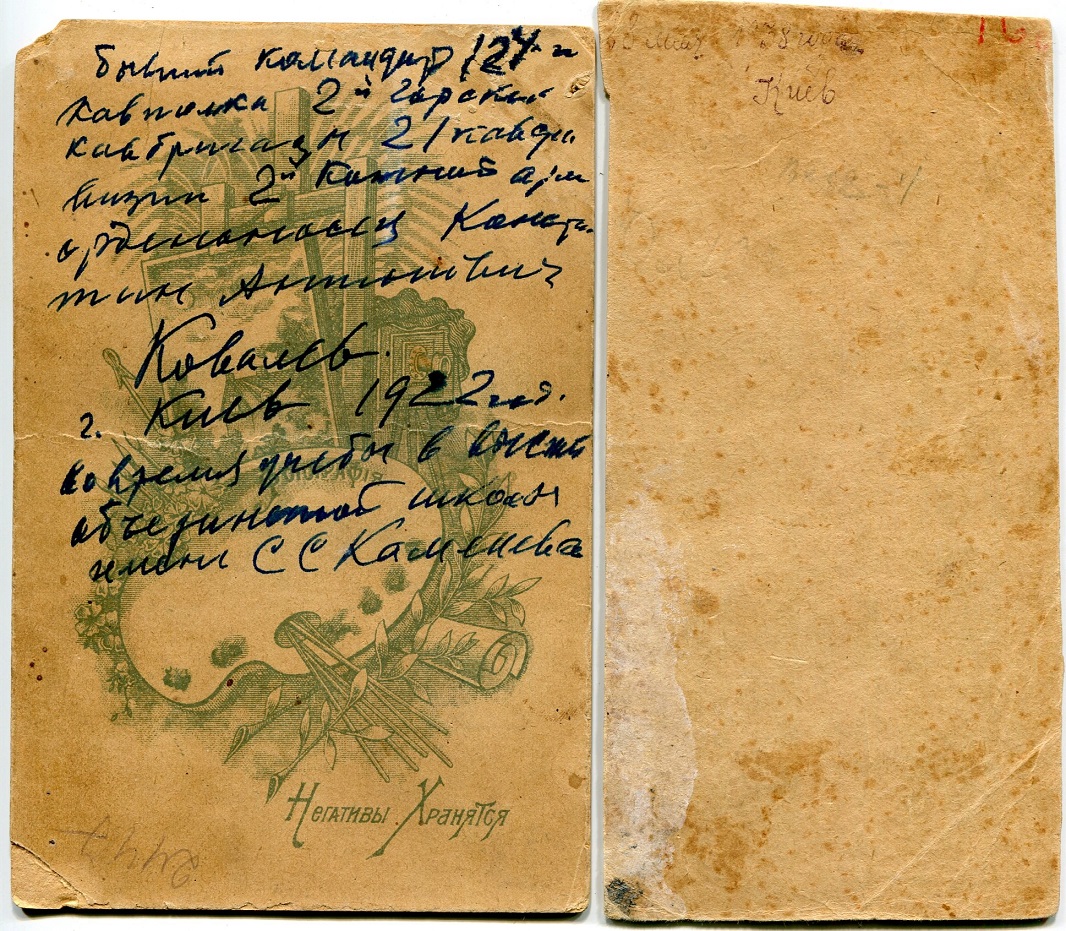 бывший командир 124-й
кавполка 2й Горской
кавбригады 21 кавди
визии 2й Конной арм
орденоносец Констан
тин Антонович
Ковалев.
г. Киев 1922 год.
во время учебы в высшей
объединенной школы
имени С С Каменева
Фотографія
Негативы Хранятся
Киев